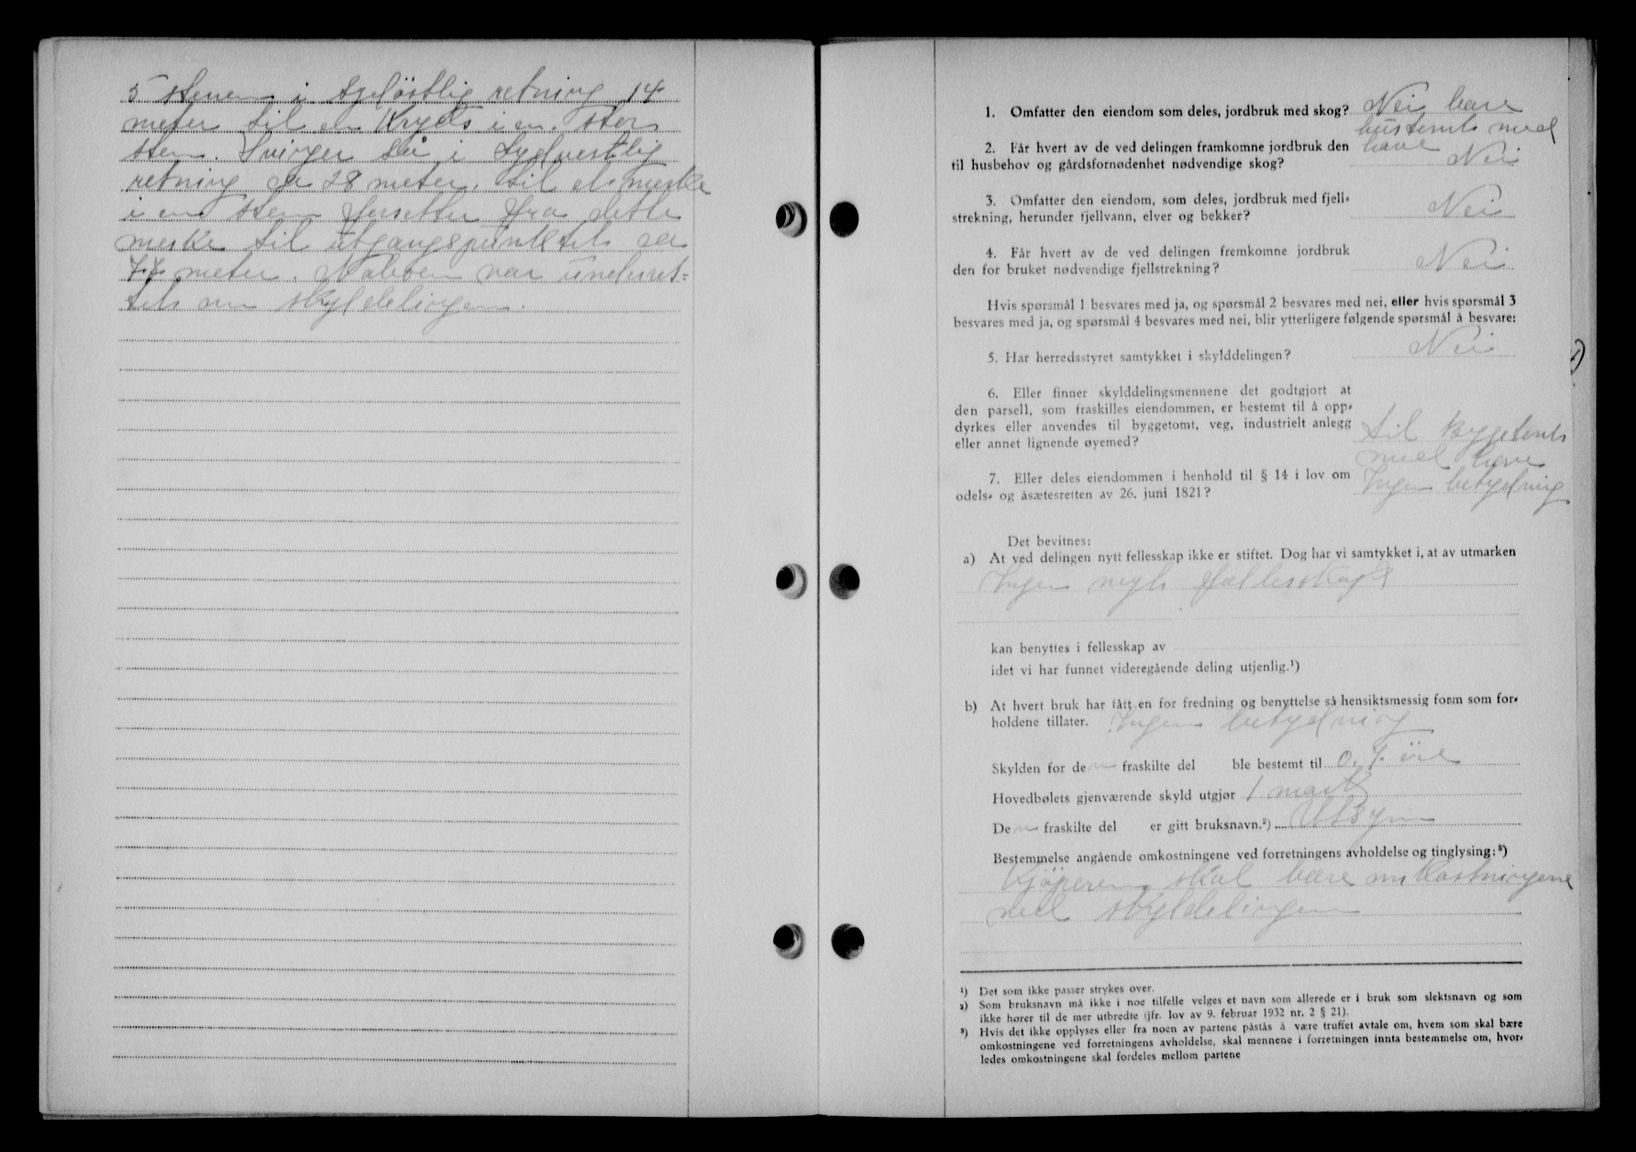 5 stener i sydöstlig retning 14
meter til en Kryds i en stor
sten. Svinger så i Sydvestlig
retning ca 28 meter, til et merke
i en sten forsetter fra dette
merke til utgangspunktet ca
77 meter. Naboen var underret=
tet om skylddelingen.
1. Omfatter den eiendom som deles, jordbruk med skog? Nei bare
hustomt med
have
2. Får hvert av de ved delingen framkomne jordbruk den
til husbehov og gårdsfornødenhet nødvendige skog? Nei
3. Omfatter den eiendom, som deles, jordbruk med fjell-
strekning, herunder fjellvann, elver og bekker? Nei
4. Får hvert av de ved delingen fremkomne jordbruk
den for bruket nødvendige fjellstrekning? Nei
Hvis spørsmål 1 besvares med ja, og spørsmål 2 besvares med nei, eller hvis spørsmål 3
besvares med ja, og spørsmål 4 besvares med nei, blir ytterligere følgende spørsmål å besvare:
5. Har herredsstyret samtykket i skylddelingen? Nei
6. Eller finner skylddelingsmennene det godtgjort at
den parsell, som fraskilles eiendommen, er bestemt til å opp-
dyrkes eller anvendes til byggetomt, veg, industrielt anlegg
eller annet lignende øyemed? til byggetomt
med have
7. Eller deles eiendommen i henhold til § 14 i lov om
odels- og åsætesretten av 26. juni 1821? Ingen betydning
Det bevitnes:
a) At ved delingen nytt fellesskap ikke er stiftet. Dog har vi samtykket i, at av utmarken
Ingen nyt fellesskap
kan benyttes i fellesskap av
idet vi har funnet videregående deling utjenlig.¹)
b) At hvert bruk har fått en for fredning og benyttelse så hensiktsmessig form som for-
holdene tillater. Ingen betydning
Skylden for den fraskilte del ble bestemt til 0. 7. öre
Hovedbølets gjenværende skyld utgjør 1 mark
Den fraskilte del er gitt bruksnavn.²) Utsyn
Bestemmelse angående omkostningene ved forretningens avholdelse og tinglysing:³)
Kjöperen skal bære omkostningene
ved skylddelingen
¹) Det som ikke passer strykes over.
²) Som bruksnavn må ikke i noe tilfelle velges et navn som allerede er i bruk som slektsnavn og som
ikke hører til de mer utbredte (jfr. lov av 9. februar 1932 nr. 2 § 21).
³) Hvis det ikke opplyses eller fra noen av partene påstås å være truffet avtale om, hvem som skal bære
omkostningene ved forretningens avholdelse, skal mennene i forretningen innta bestemmelse om, hvor-
ledes omkostningene skal fordeles mellom partene